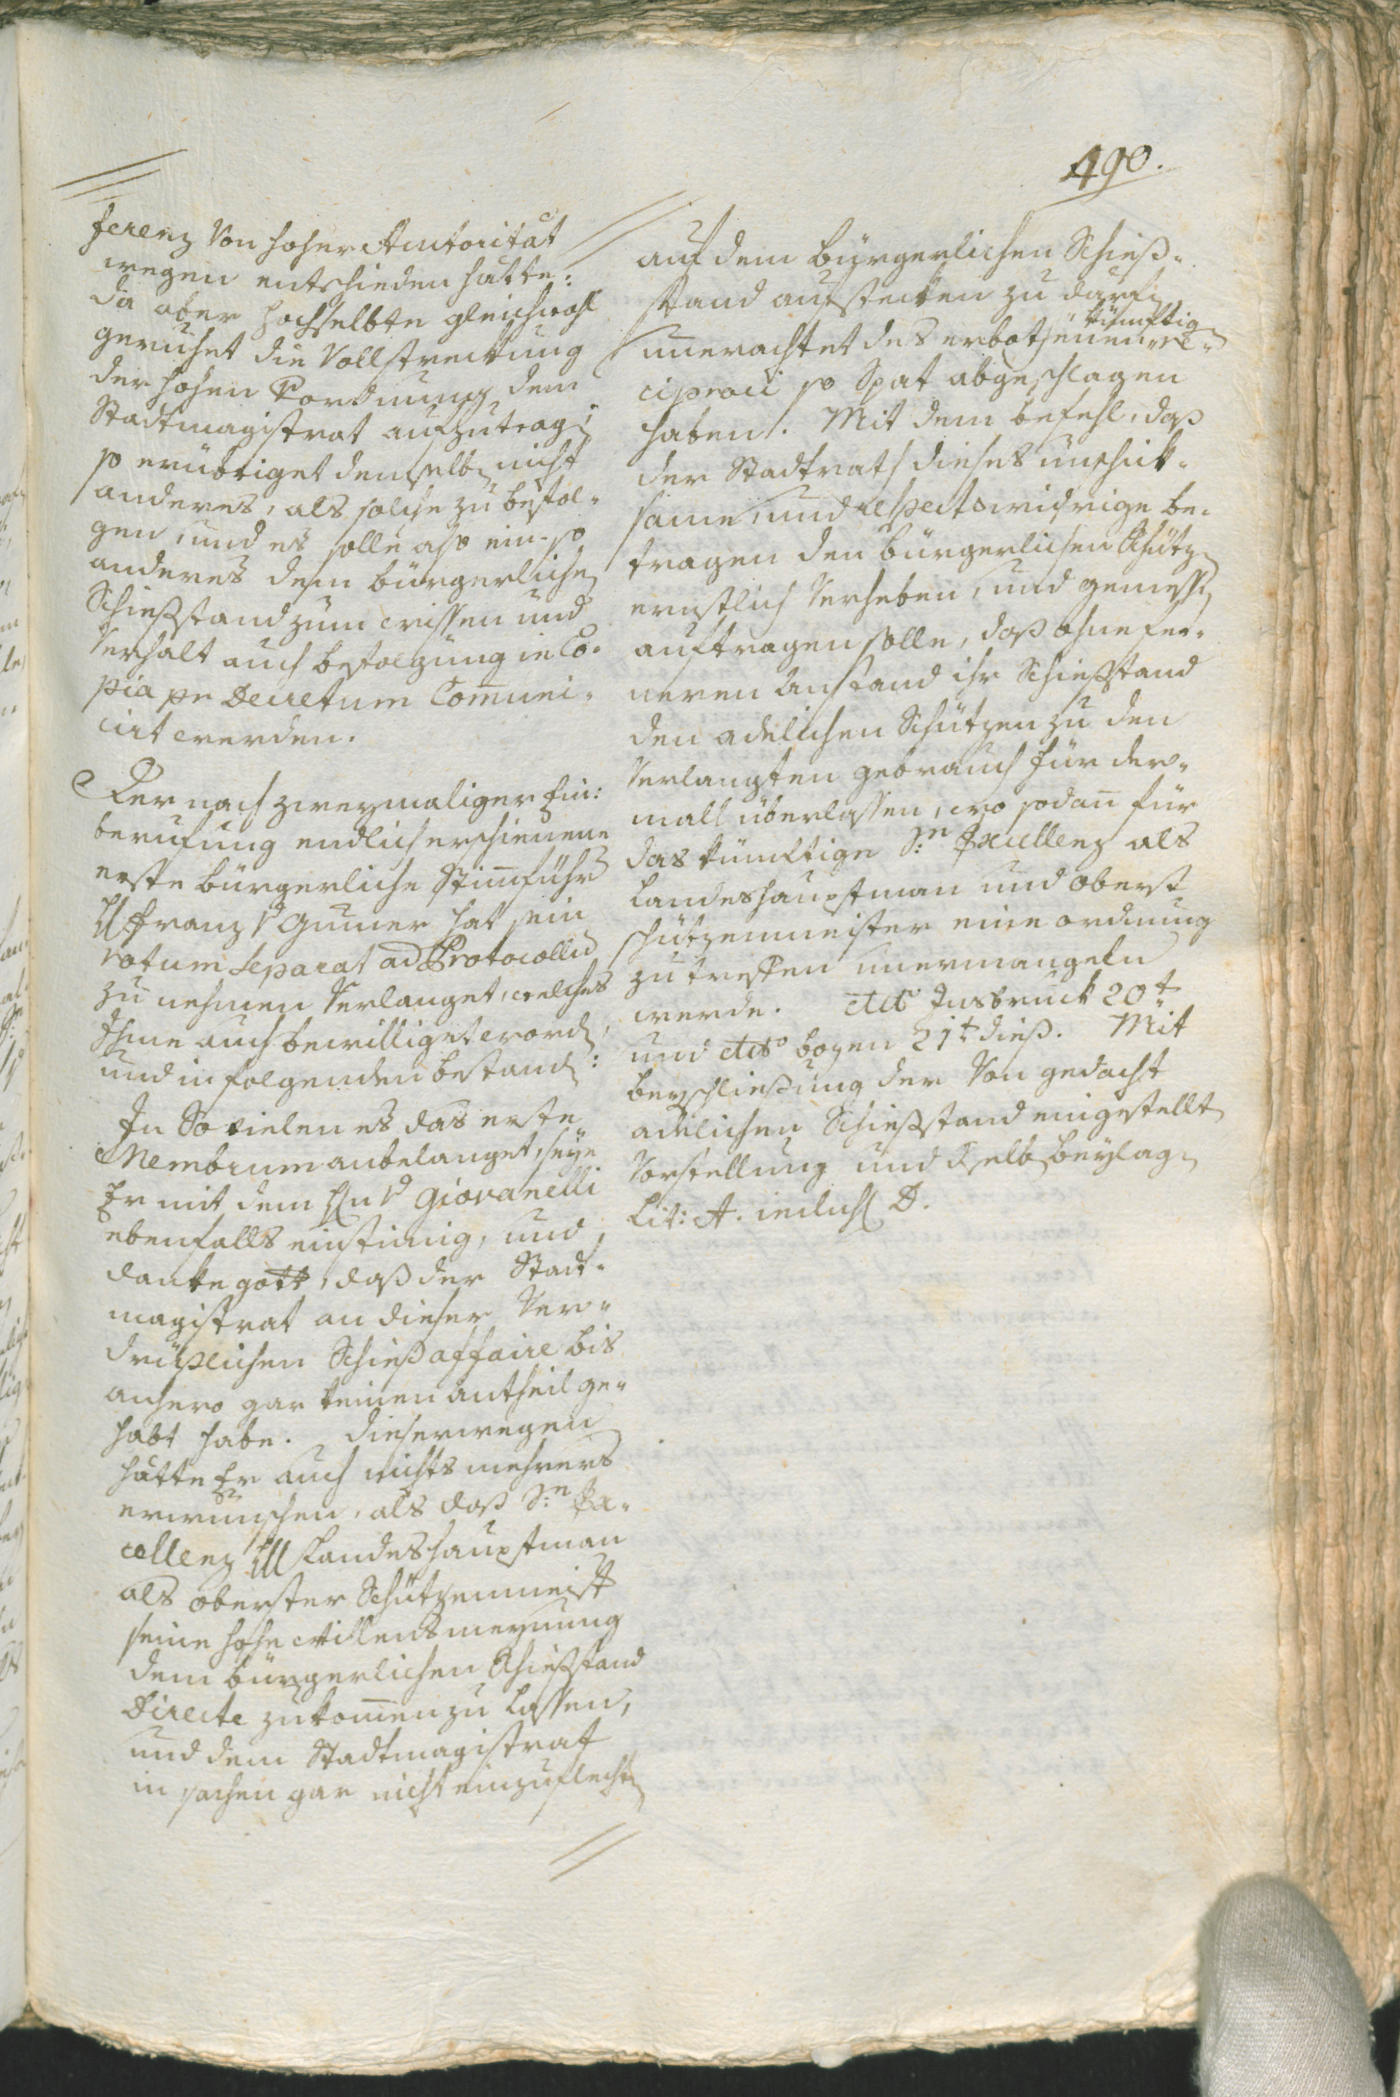 490.
ferenz von hoher Autoritat
wegen entschieden hätte:
da aber hochselbte gleichwohl
geruhet die Vollstreckung
der hohen Verordnung dem
Stadtmagistrat aufzutragen;
so erübriget denselben nicht
anderes, als solche zu befol-
gen, und es solle also ein- so
anderes dem bürgerlichen
Schießstand zum wissen und
Verhalt auch befolgung in Co-
pia per Decretum Communi-
cirt werden.
Der nach zweymaliger Ein:
berufung endlich erschienene
erste bürgerliche Stimmführer
H Franz v Gumer hat sein
votum separat ad Protocollum
zu nehmen verlanget, welches
Ihme auch bewilliget worden,
und in folgenden bestand:
In So vielen es das erste
Membrum anbelanget, seye
Er mit dem H v Giovanelli
ebenfalls einstimmig, und
danke gott, daß der Stadt-
magistrat an dieser Ver-
drüßlichen Schießaffaire bis
anhero gar keinen antheil ge-
habt habe. Dieserwegen
hätte Er auch nichts mehrers
erwünschen, als daß Se Ex-
cellenz H Landeshauptman
als oberster Schützenmeister
seine hohe Willensmeynung
dem bürgerlichen Schießstand
Directe zukommen zu lassen,
und dem Stadtmagistrat
in sachen gar nicht einzuflechten
auf dem bürgerlichen Schieß-
stand aufstecken zu därfen
künftigen
unerachtet des erbothenen re-
ciproci so Spat abgeschlagen
haben. Mit dem befehl, daß
der Stadtrath dieses unschick-
same, und respectswidrige be-
tragen den bürgerlichen Schützen
ernstlich verheben, und gemessen
auftragen solle, daß ohne fer-
neren Anstand ihr Schießstand
den adelichen Schützen zu den
verlangten gebrauch für der-
mall überlassen, wo sodann für
das künftige Se Excellenz als
Landeshauptman und oberst
schützenmeister eine ordnung
zu treffen unermangeln
werde. Insbruck 20t
und bozen 21t dieß. Mit
beyschließung der von gedacht
adelichen Schießstand eingestellten
Vorstellung und derselben beylagen
Lit: A. D.